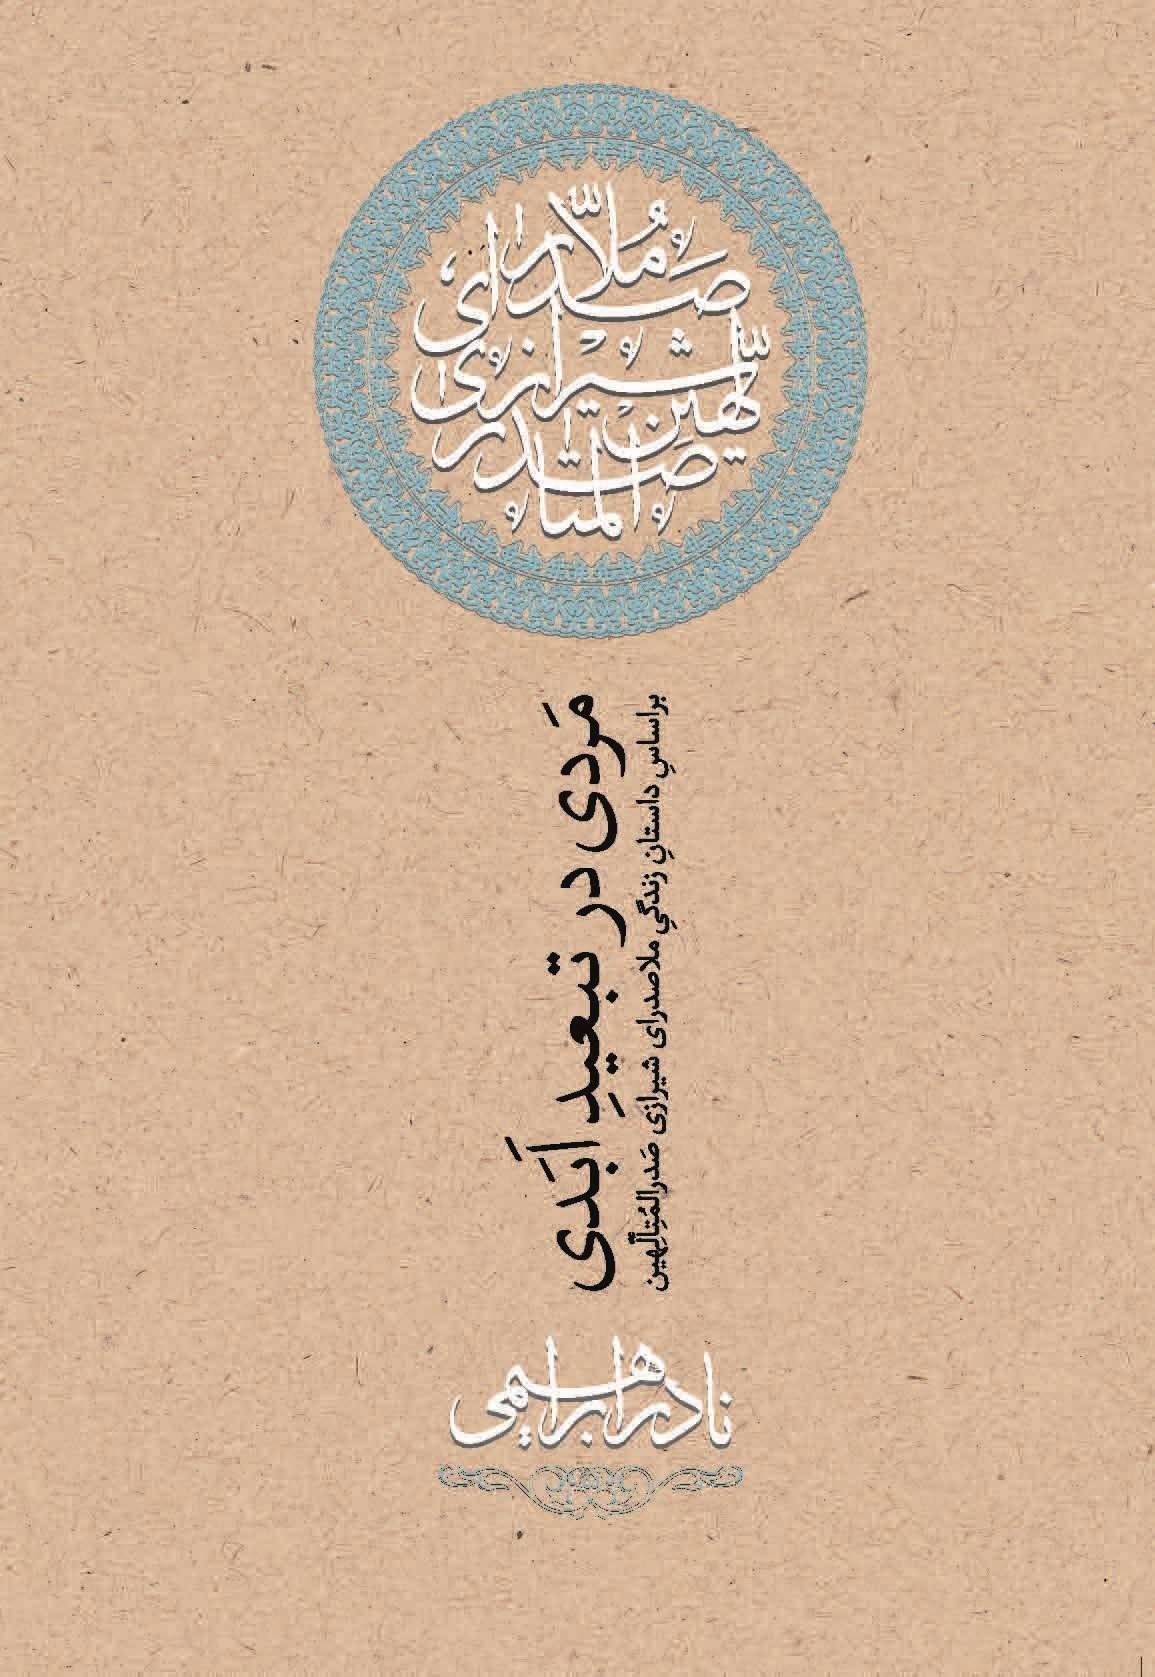 ملّا صدرای
شیرازی
صدرالمتألّهین
مَردی در تبعیدِ اَبَدی
براساسِ داستانِ زندگیِ ملاصدرای شیرازی صَدرالمُتِألّهین
نادر ابراهیمی